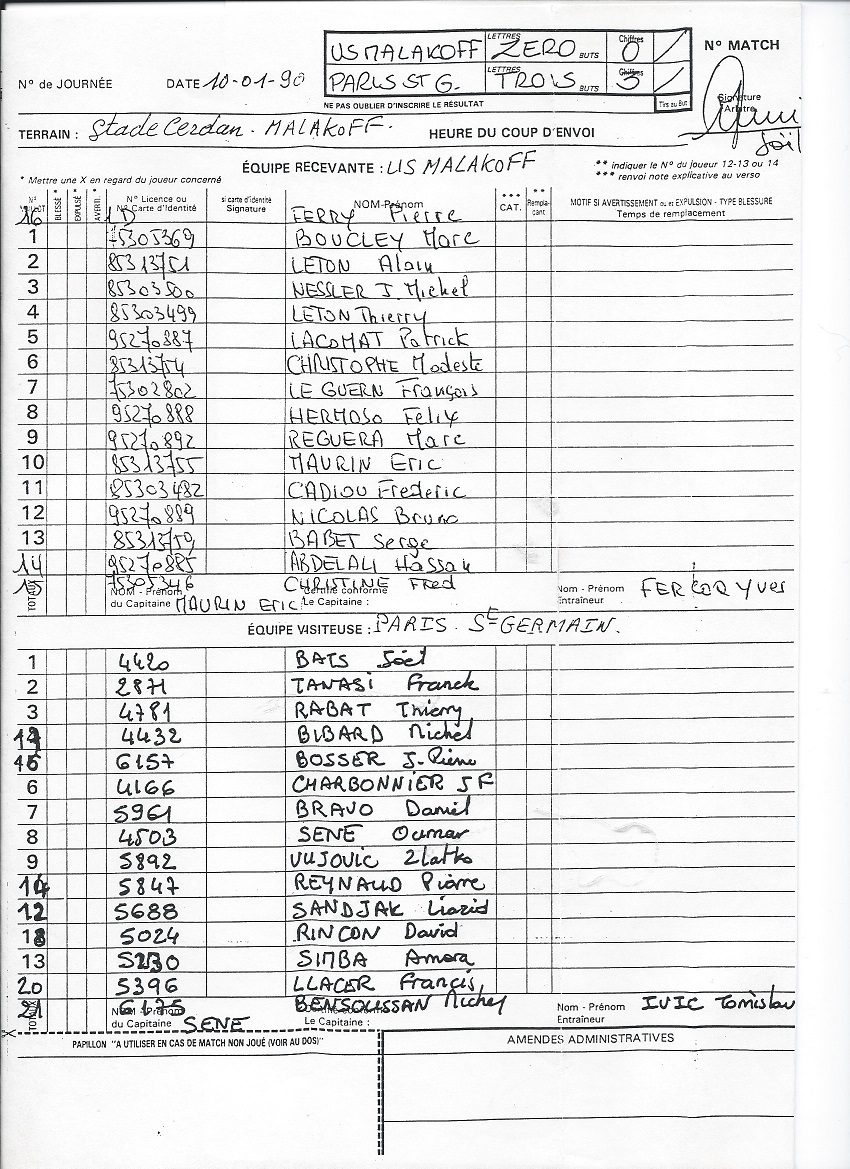 US MALAKOFF LETTRES ZERO BUTS Chiffres 0
PARIS ST G. LETTRES TROIS BUTS Chiffres 3
N° MATCH
N° de JOURNÉE DATE 10-01-90
NE PAS OUBLIER D'INSCRIRE LE RÉSULTAT Tirs au But
Signature Arbitre
Joël
TERRAIN : Stade Cerdan - MALAKOFF. HEURE DU COUP D'ENVOI
ÉQUIPE RECEVANTE : US MALAKOFF
** indiquer le N° du joueur 12-13 ou 14
*** renvoi note explicative au verso
* Mettre une X en regard du joueur concerné
BLESSÉ * EXPULSÉ * AVERTI. * N° Licence ou N° Carte d'Identité si carte d'identité Signature NOM-Prénom *** CAT. ** Remplaçant MOTIF SI AVERTISSEMENT ou et EXPULSION - TYPE BLESSURE Temps de remplacement
16 1D FERRY Pierre
1 75305369 BOUCLEY Marc
2 85313751 LETON Alain
3 85303500 NESSLER J. Michel
4 85303499 LETON Thierry
5 95270887 LACOMAT Patrick
6 85313754 CHRISTOPHE Modeste
7 75302802 LE GUERN François
8 95270888 HERMOSO Felix
9 95270892 REGUERA Marc
10 85313755 MAURIN Eric
11 85303482 CADIOU Frederic
12 95270889 NICOLAS Bruno
13 85313759 BABET Serge
14 95270885 ABDELALI Hassan
15 75305346 CHRISTINE Fred
NOM - Prénom du Capitaine MAURIN Eric Certifié conforme Le Capitaine : Nom - Prénom Entraîneur Yves
ÉQUIPE VISITEUSE : PARIS - St GERMAIN.
1 4420 BATS Joël
2 2871 TANASI Franck
3 4781 RABAT Thierry
4432 BIBARD Michel
15 6157 BOSSER J-Pierre
6 4166 CHARBONNIER JF
7 5961 BRAVO Daniel
8 4503 SENE Oumar
9 5892 VUJOVIC Zlatko
14 5847 REYNAUD Pierre
12 5688 SANDJAK Liazid
18 5024 RINCON David
13 5230 SIMBA Amara
20 5396 LLACER Francis
21 6175 BENSOUSSAN Michel
NOM - Prénom du Capitaine SENE Le Capitaine : Nom - Prénom Entraîneur IVIC Tomislav
PAPILLON "A UTILISER EN CAS DE MATCH NON JOUÉ (VOIR AU DOS)" AMENDES ADMINISTRATIVES